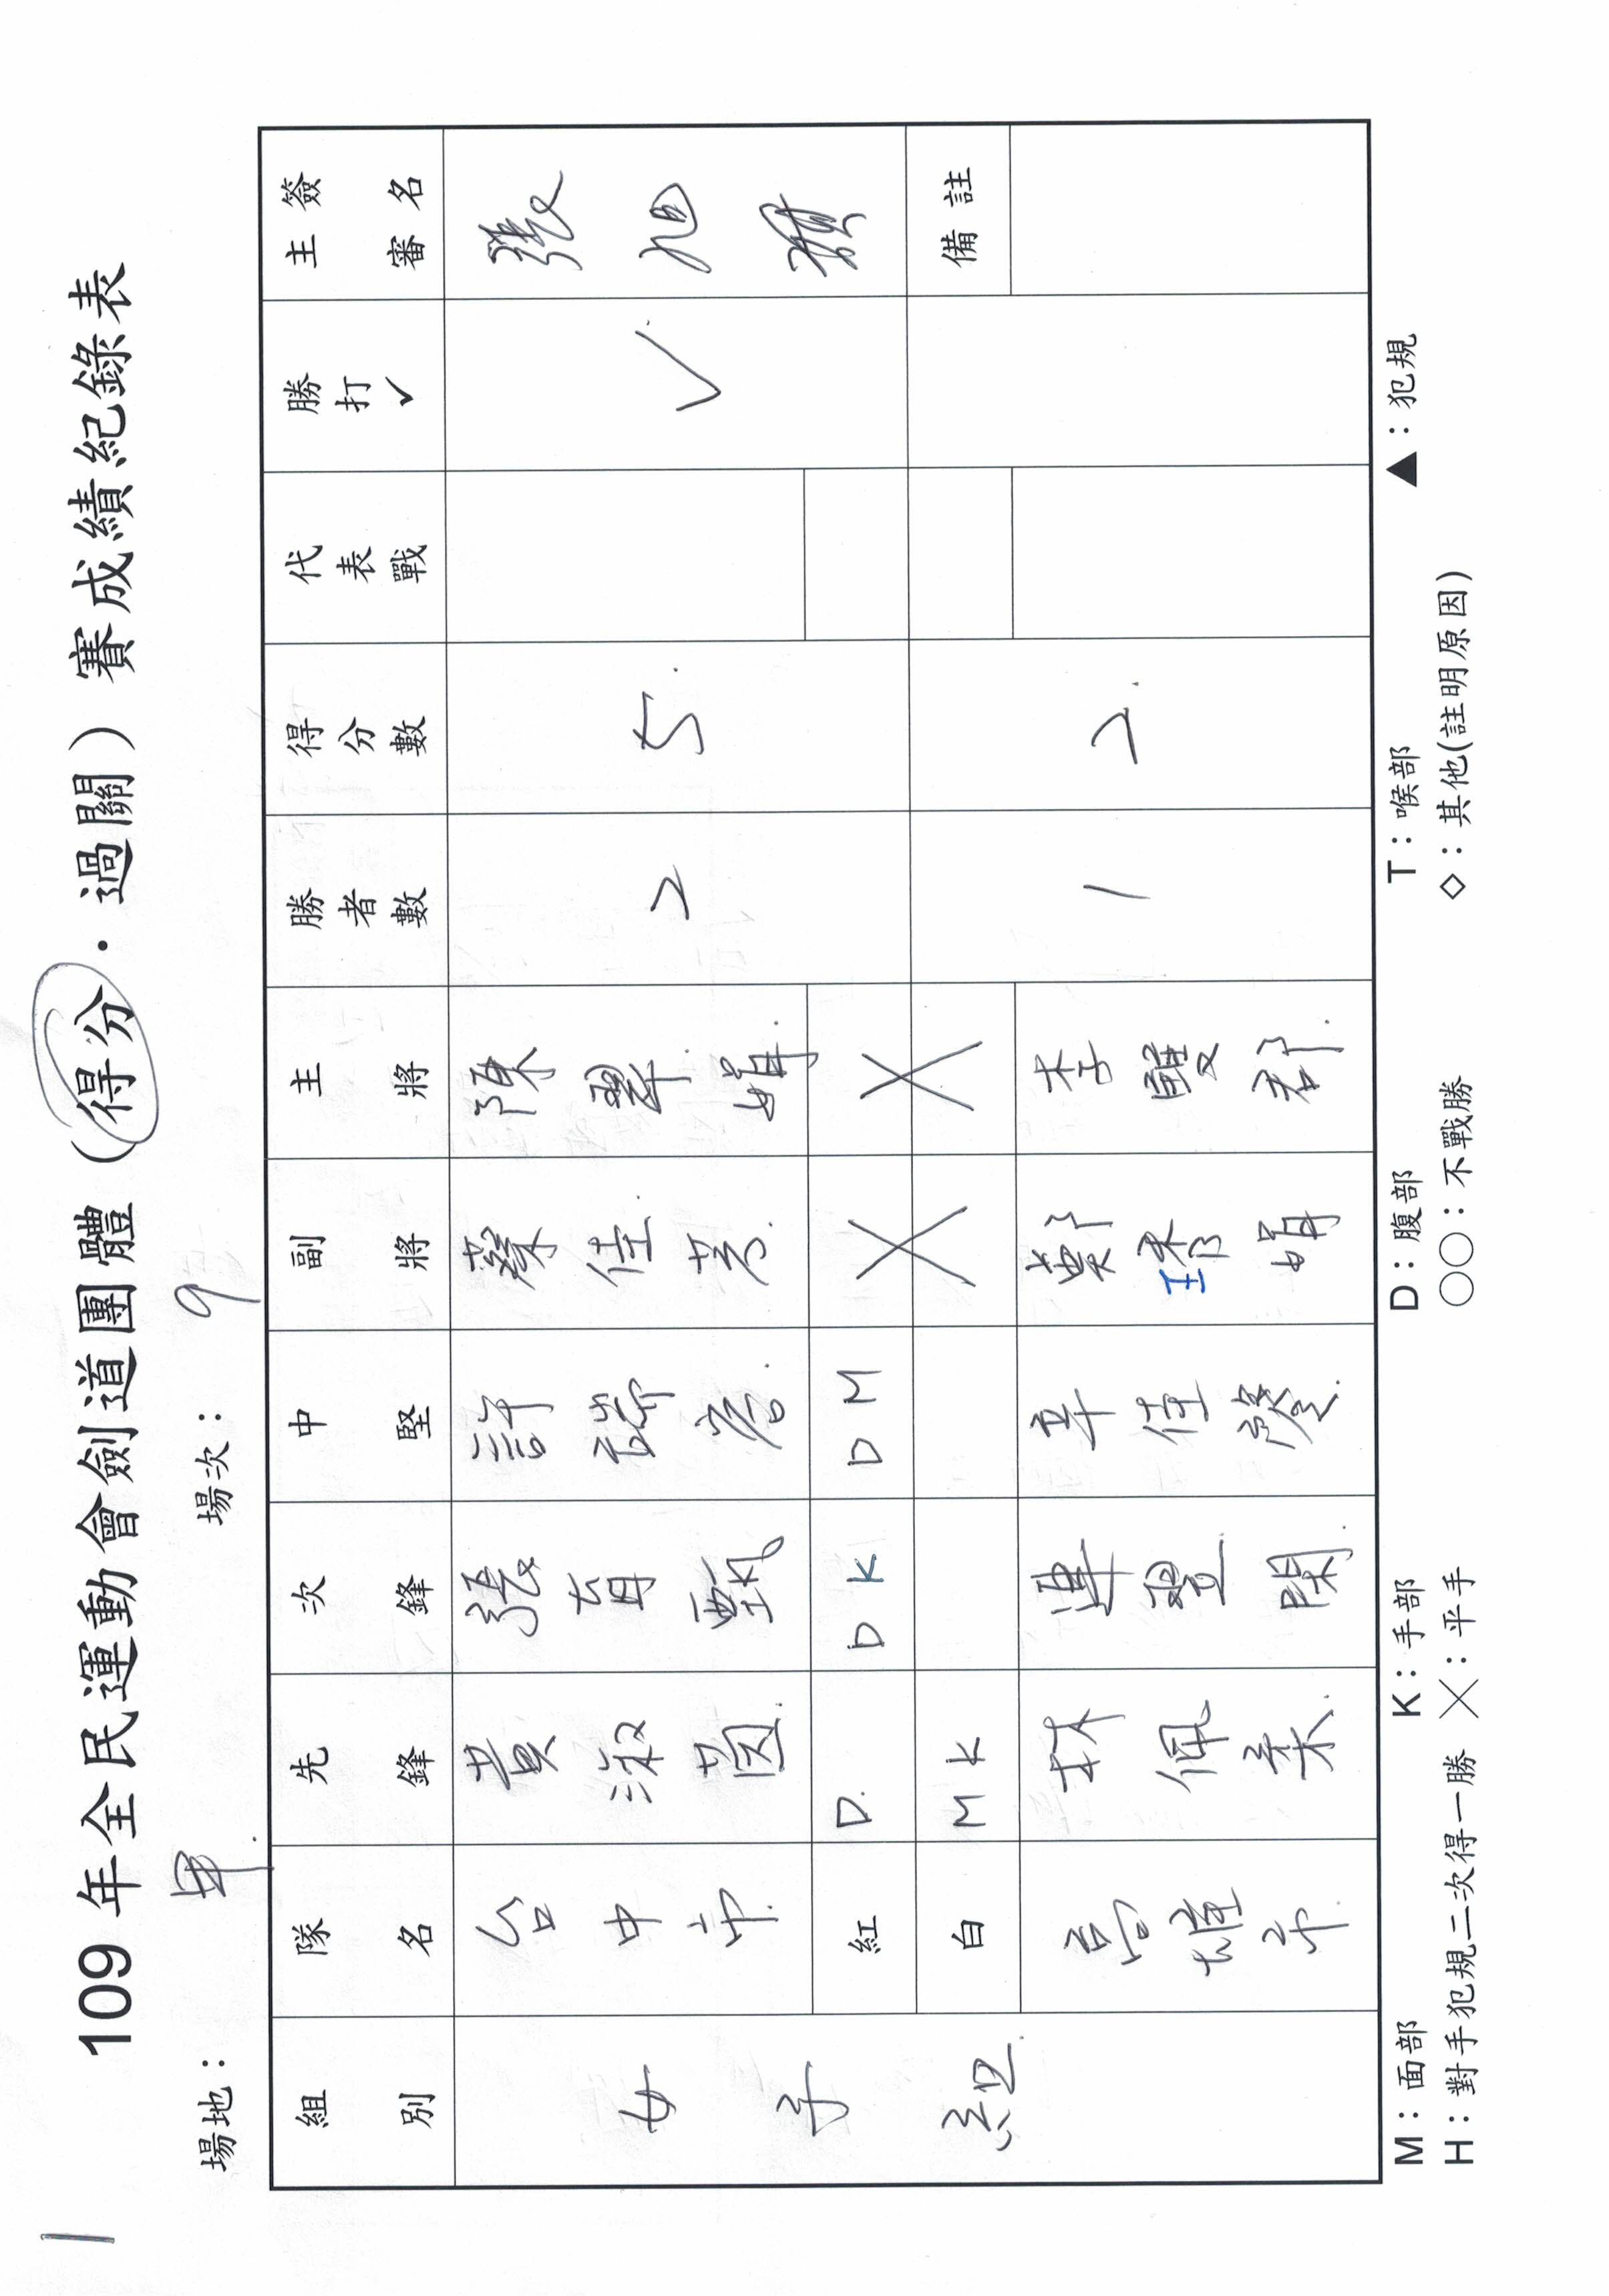 109 年全民運動會劍道團體（得分・過關）賽成績紀錄表
場地： 單 場次： 9
組別 隊名 先鋒 次鋒 中堅 副將 主將 勝者數 得分數 代表戰 勝打✓ 主審簽名
女子組 台中市 黃淑茵 張育甄 許瑞 蔡佳芳 陳翠娟 2 5 ✓ 張旭
紅 D D K D M ╳ ╳
白 M K ╳ ╳ 備註
高雄市 林佩柔 連翌閑 辜佳 鄭琇娟 李雙君 1 2
M：面部 K：手部 D：腹部 T：喉部 ▲：犯規
H：對手犯規二次得一勝 ╳：平手 ○○：不戰勝 ◇：其他(註明原因)